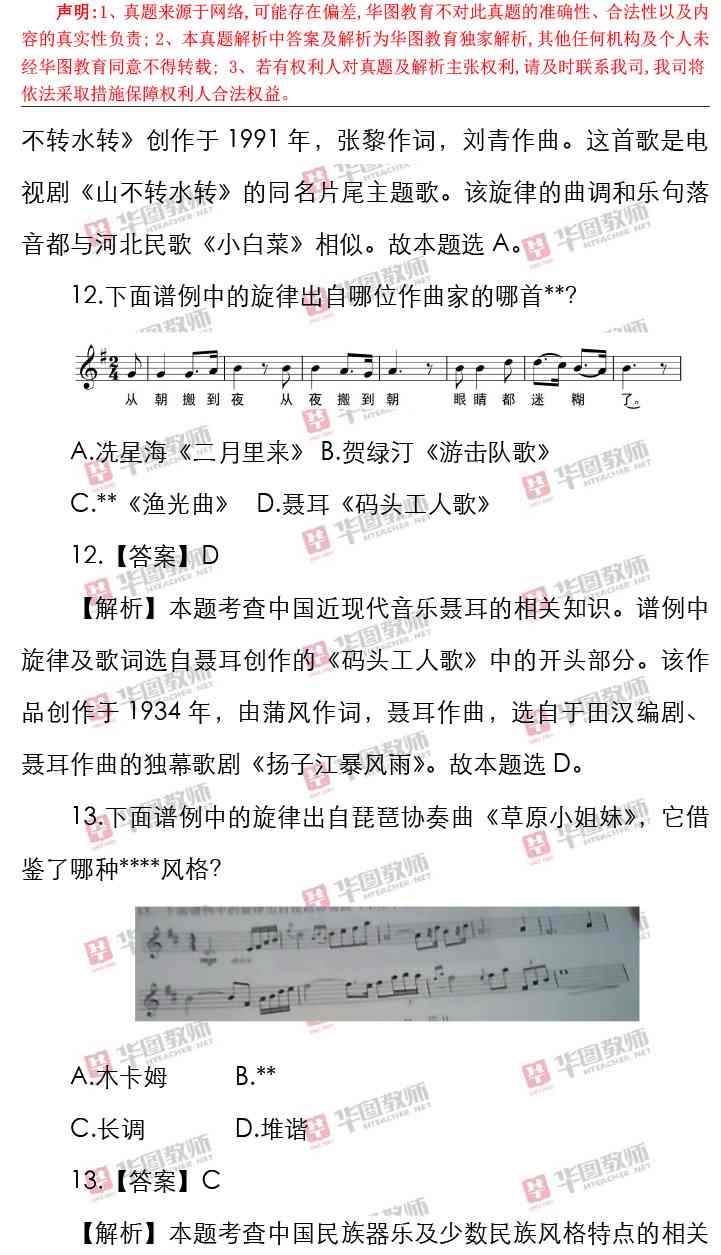 声明:1、真题来源于网络,可能存在偏差,华图教育不对此真题的准确性、合法性以及内
容的真实性负责; 2、本真题解析中答案及解析为华图教育独家解析,其他任何机构及个人未
经华图教育同意不得转载; 3、若有权利人对真题及解析主张权利,请及时联系我司,我司将
依法采取措施保障权利人合法权益。
不转水转》创作于 1991 年，张黎作词，刘青作曲。这首歌是电
视剧《山不转水转》的同名片尾主题歌。该旋律的曲调和乐句落
音都与河北民歌《小白菜》相似。故本题选 A。
12.下面谱例中的旋律出自哪位作曲家的哪首**?
2
4
从 朝 搬 到 夜 从 夜 搬 到 朝 眼 睛 都 迷 糊 了。
A.冼星海《二月里来》 B.贺绿汀《游击队歌》
C.**《渔光曲》 D.聂耳《码头工人歌》
12.【答案】D
【解析】本题考查中国近现代音乐聂耳的相关知识。谱例中
旋律及歌词选自聂耳创作的《码头工人歌》中的开头部分。该作
品创作于 1934 年，由蒲风作词，聂耳作曲，选自于田汉编剧、
聂耳作曲的独幕歌剧《扬子江暴风雨》。故本题选 D。
13.下面谱例中的旋律出自琵琶协奏曲《草原小姐妹》，它借
鉴了哪种****风格?
A.木卡姆 B.**
C.长调 D.堆谐
13.【答案】C
【解析】本题考查中国民族器乐及少数民族风格特点的相关
华图教师
HTEACHER.NET